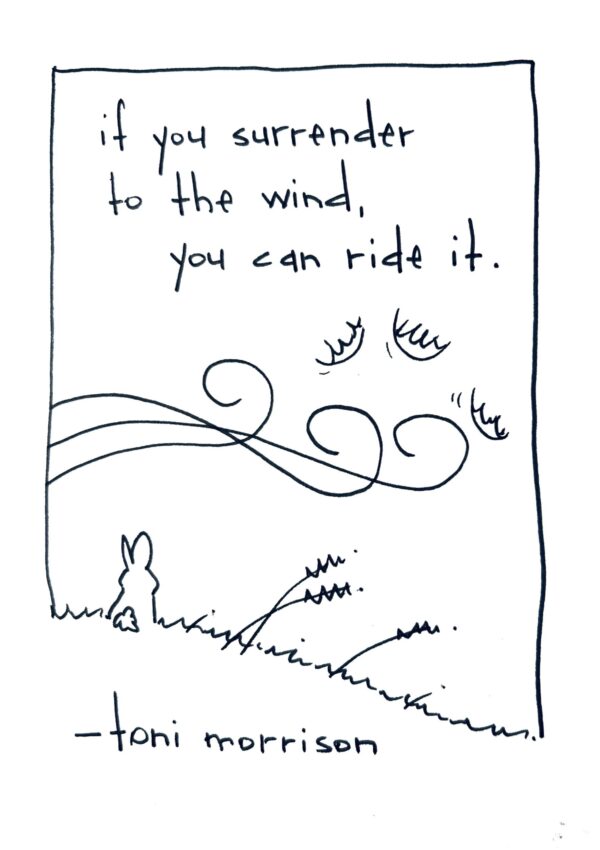 if you surrender
to the wind,
you can ride it.
–toni morrison